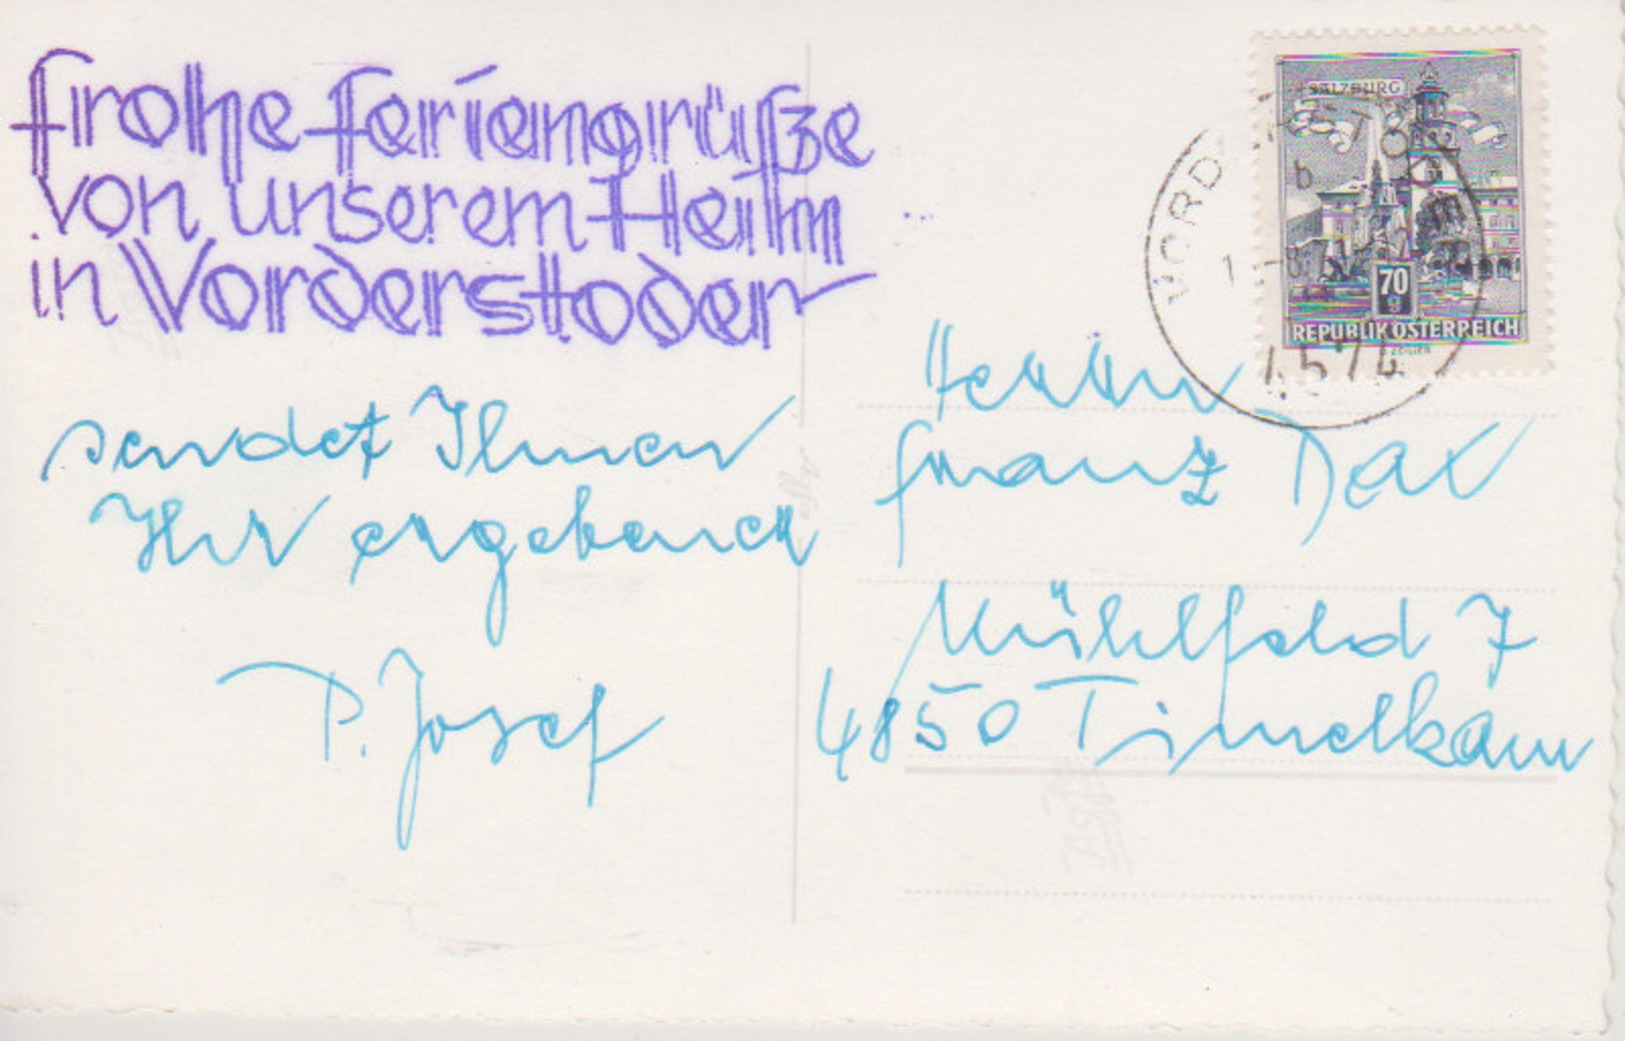 Frohe Feriengrüße
von unserem Heim
in Vorderstoder
sendet Ihnen
Ihr ergebener
P. Josef
SALZBURG
70
g
REPUBLIK ÖSTERREICH
4574
Herrn
Franz Dax
Mühlfeld 7
4850 Timelkam